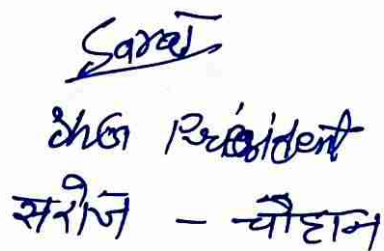 Saroj
President
सरोज - चौहान